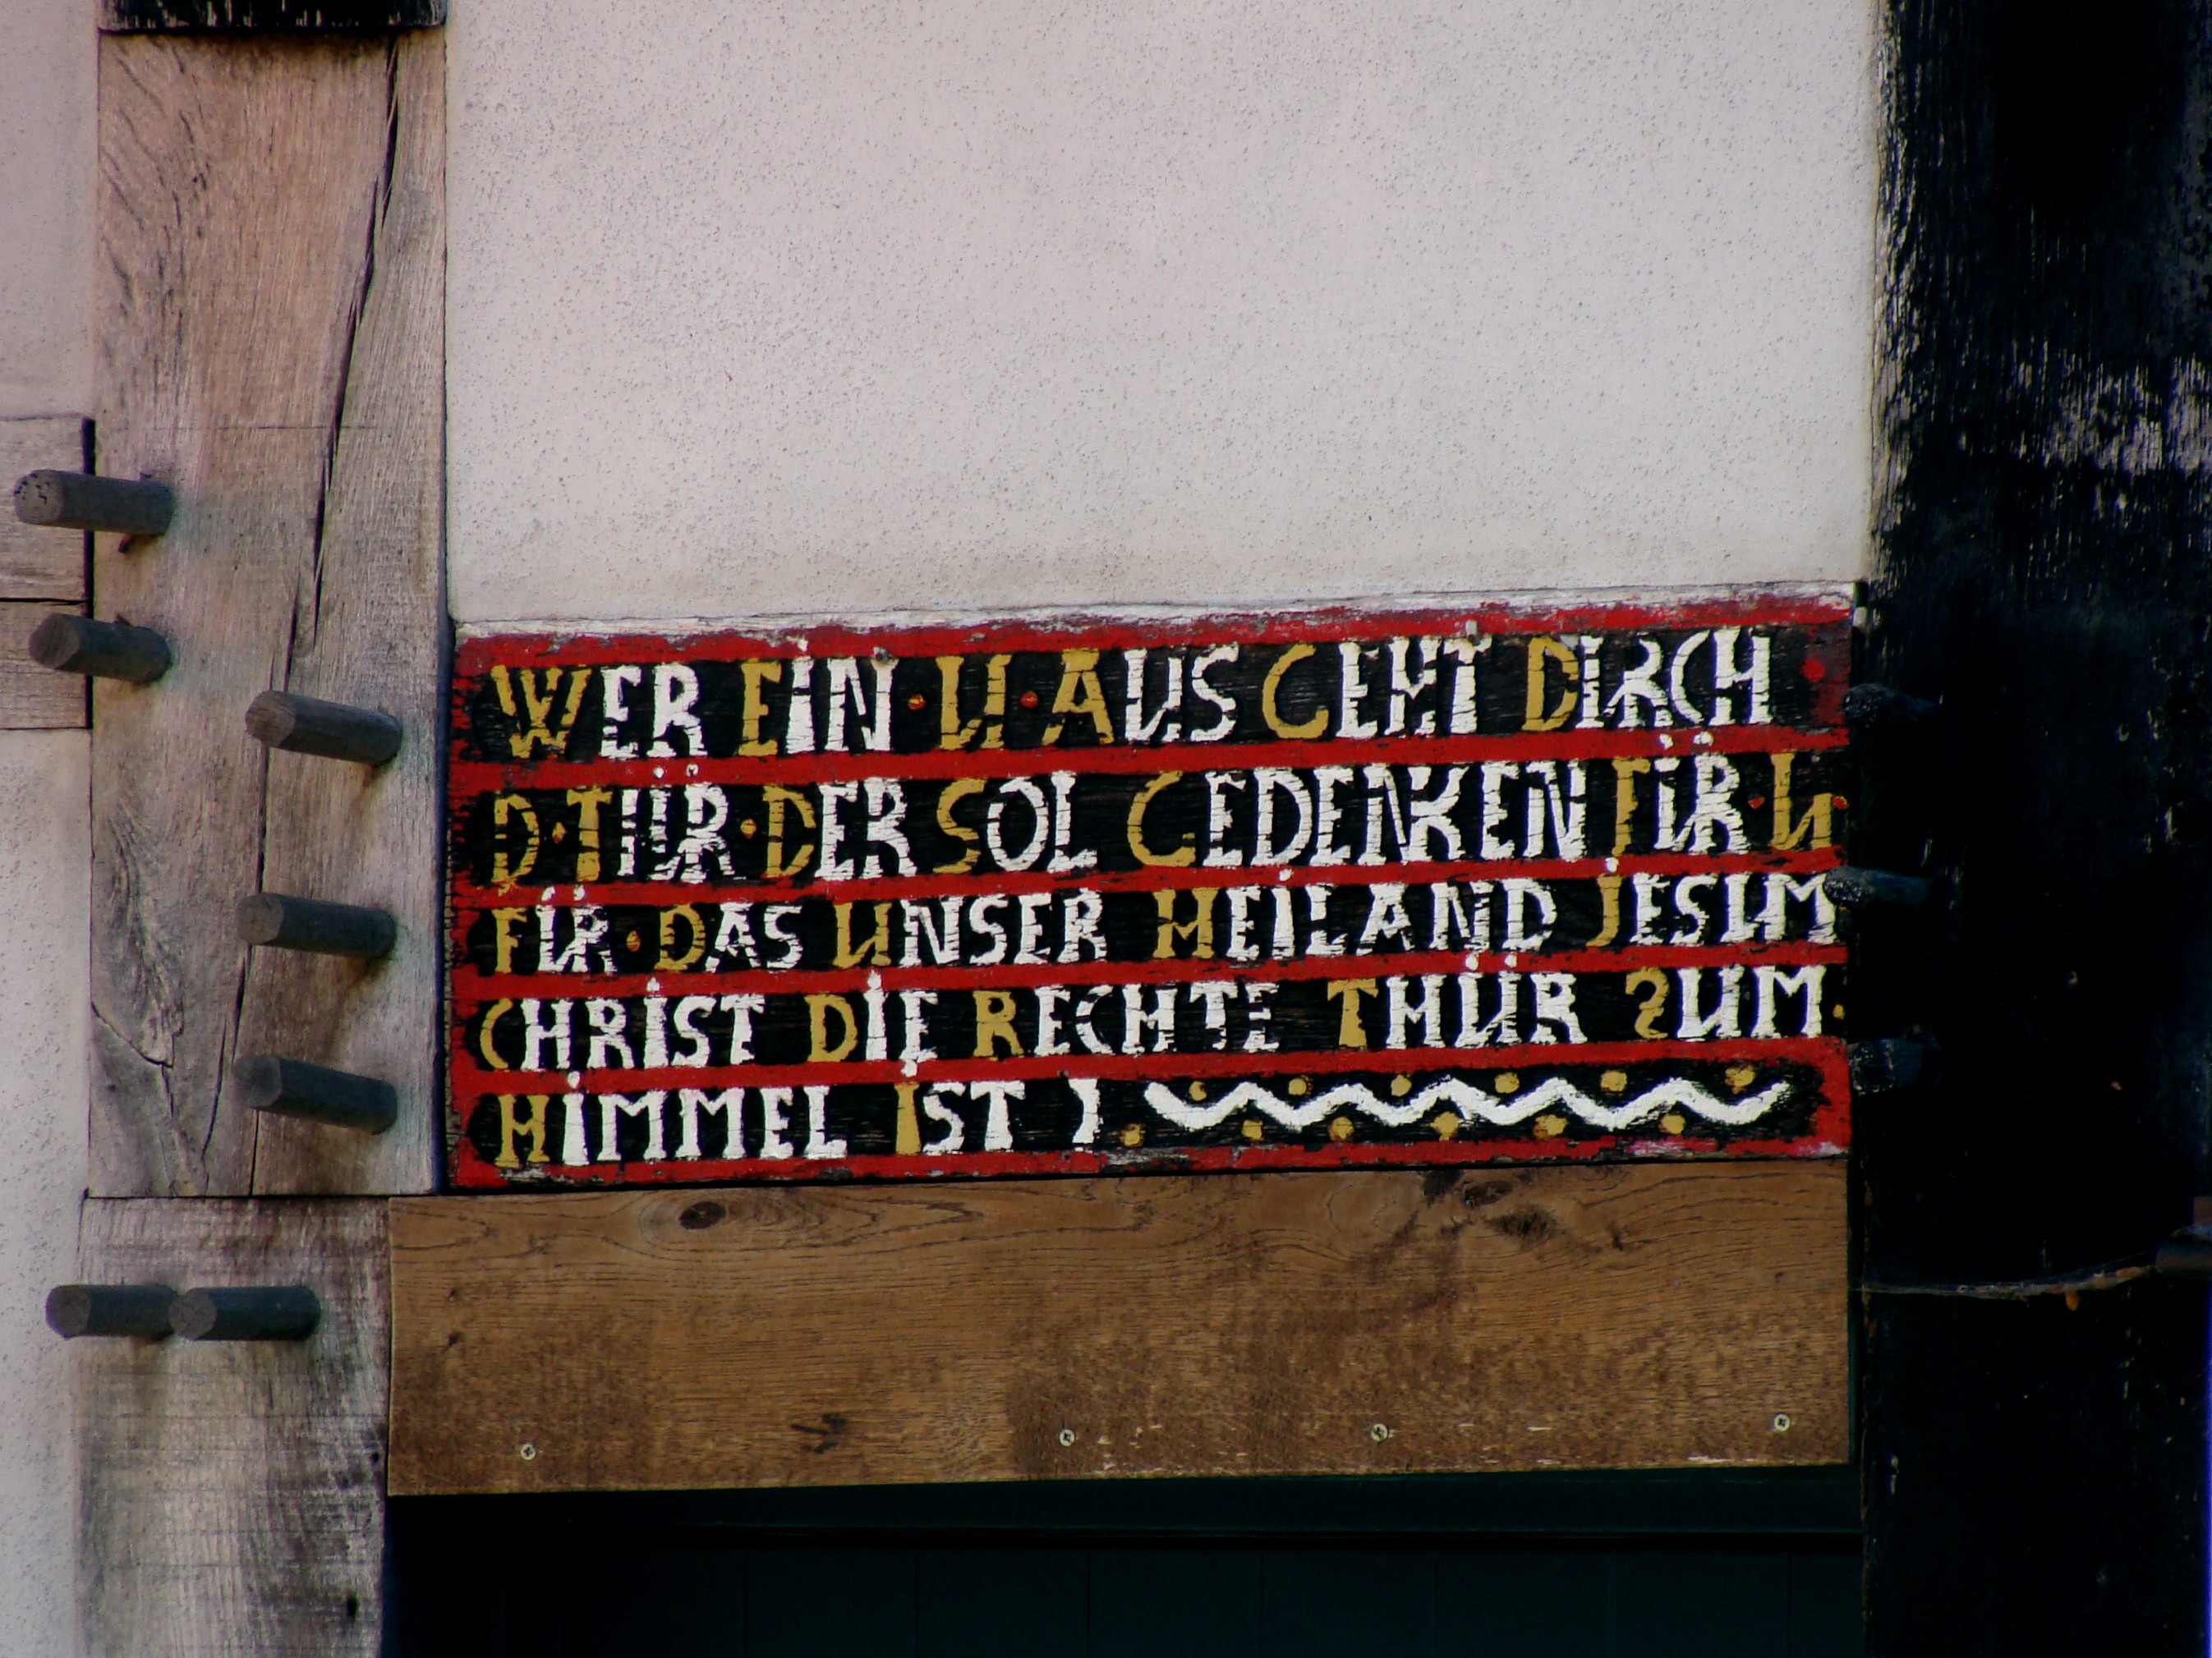 WER EIN · U · AUS GEHT DIRCH ·
D · TÜR · DER SOL GEDENKEN FÜR · U ·
FÜR · DAS UNSER HEILAND JESUM
CHRIST DIE RECHTE THÜR ZUM ·
HIMMEL IST )